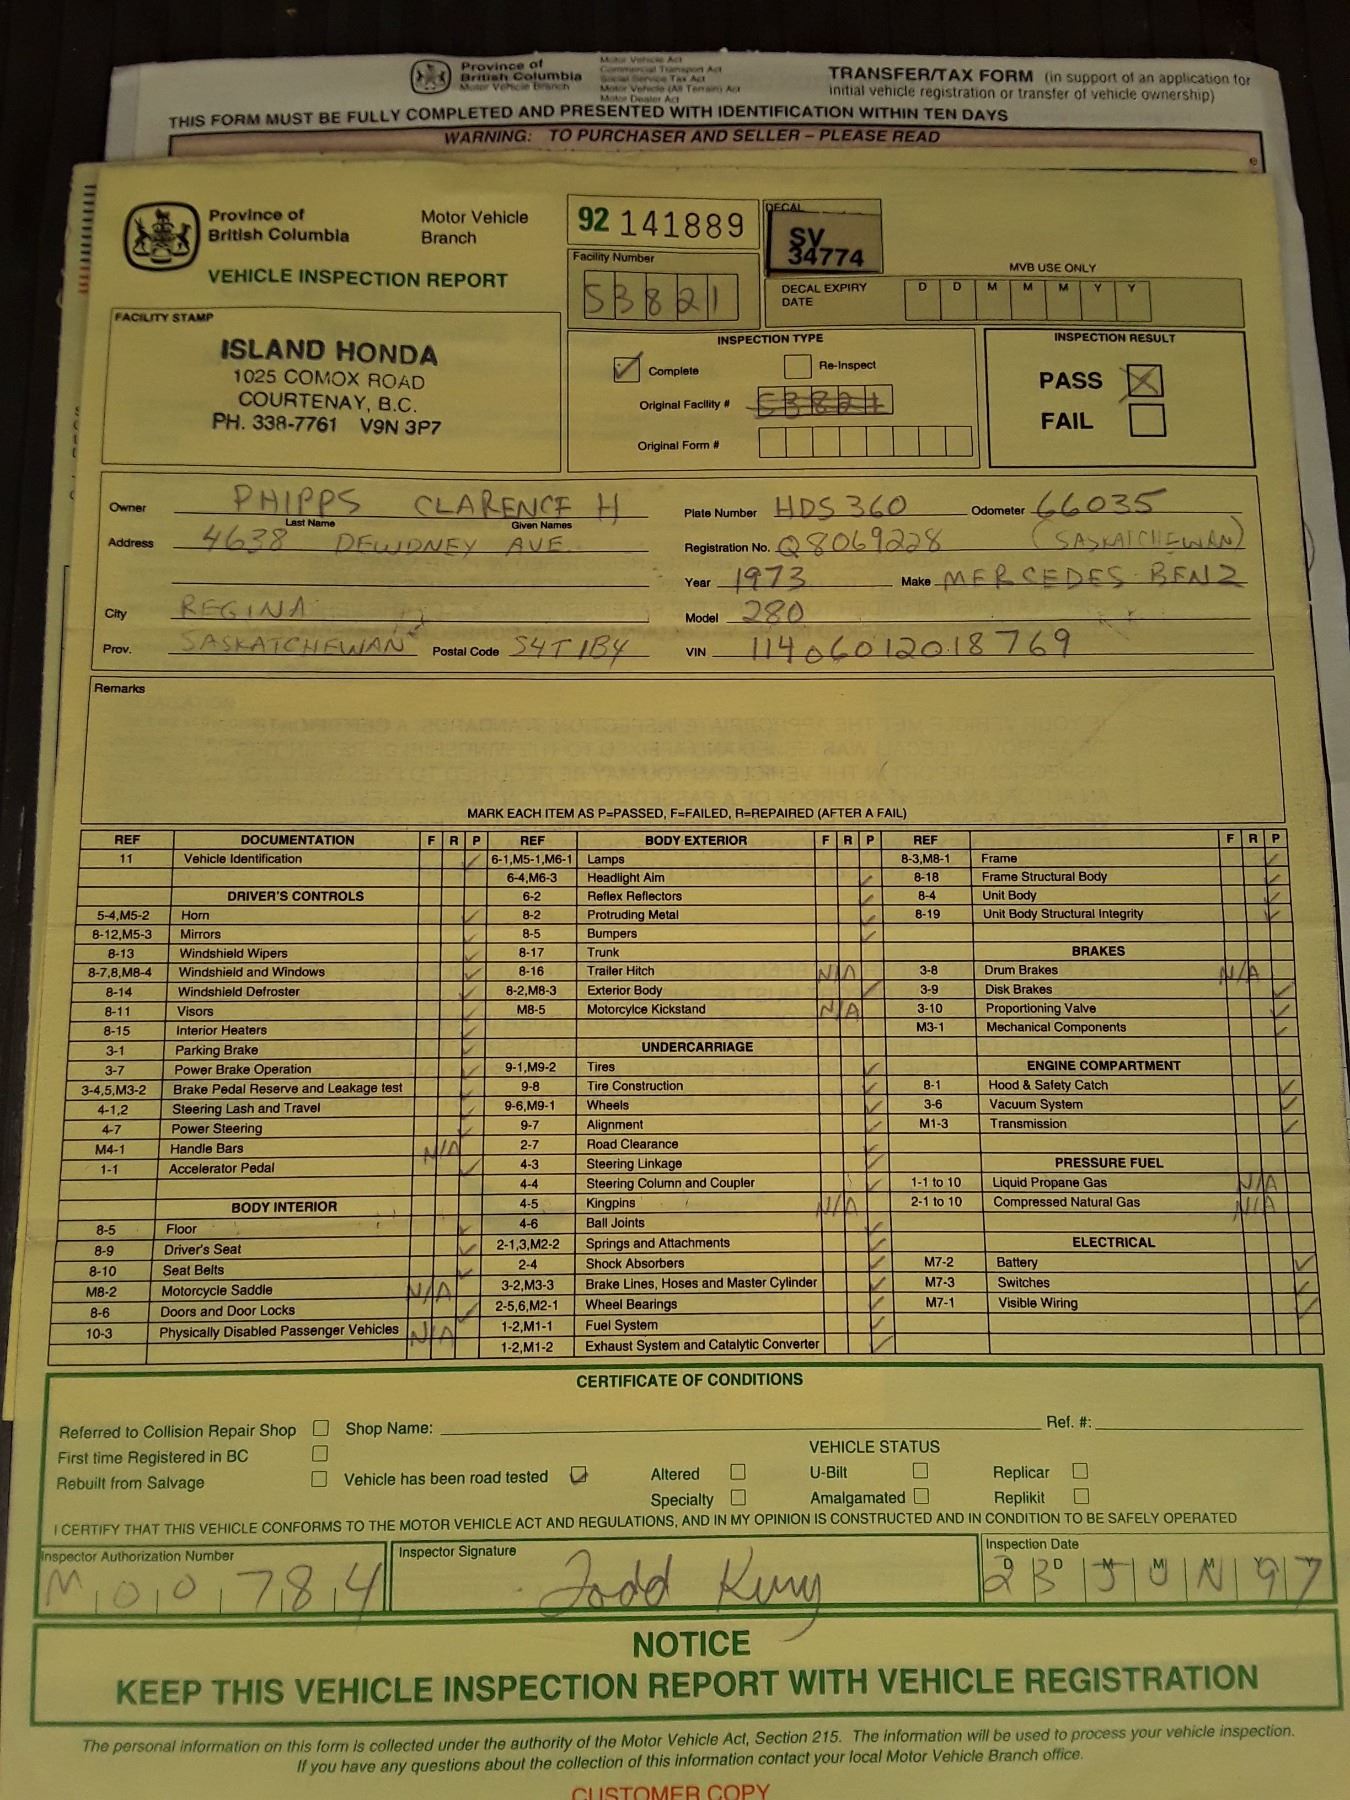 Province of British Columbia
Motor Vehicle Branch
Motor Vehicle Act
Commercial Transport Act
Social Service Tax Act
Motor Vehicle (All Terrain) Act
Motor Dealer Act
TRANSFER/TAX FORM (in support of an application for
initial vehicle registration or transfer of vehicle ownership)
THIS FORM MUST BE FULLY COMPLETED AND PRESENTED WITH IDENTIFICATION WITHIN TEN DAYS
WARNING: TO PURCHASER AND SELLER – PLEASE READ
Province of British Columbia
Motor Vehicle Branch
VEHICLE INSPECTION REPORT
92 141889
DECAL
SV 34774
Facility Number
53821
MVB USE ONLY
DECAL EXPIRY DATE D D M M M Y Y
FACILITY STAMP
ISLAND HONDA
1025 COMOX ROAD
COURTENAY, B.C.
PH. 338-7761 V9N 3P7
INSPECTION TYPE
Complete Re-Inspect
Original Facility # 53821
Original Form #
INSPECTION RESULT
PASS
FAIL
Owner PHIPPS CLARENCE H
Last Name Given Names
Address 4638 DEWDNEY AVE.
City REGINA
Prov. SASKATCHEWAN Postal Code S4T 1B4
Plate Number HDS 360 Odometer 66035
Registration No. Q8069228 (SASKATCHEWAN)
Year 1973 Make MERCEDES BENZ
Model 280
VIN 11406012018769
Remarks
MARK EACH ITEM AS P=PASSED, F=FAILED, R=REPAIRED (AFTER A FAIL)
REF DOCUMENTATION F R P
11 Vehicle Identification
DRIVER'S CONTROLS
5-4,M5-2 Horn
8-12,M5-3 Mirrors
8-13 Windshield Wipers
8-7,8,M8-4 Windshield and Windows
8-14 Windshield Defroster
8-11 Visors
8-15 Interior Heaters
3-1 Parking Brake
3-7 Power Brake Operation
3-4,5,M3-2 Brake Pedal Reserve and Leakage test
4-1,2 Steering Lash and Travel
4-7 Power Steering
M4-1 Handle Bars N/A
1-1 Accelerator Pedal
BODY INTERIOR
8-5 Floor
8-9 Driver's Seat
8-10 Seat Belts
M8-2 Motorcycle Saddle N/A
8-6 Doors and Door Locks
10-3 Physically Disabled Passenger Vehicles N/A
REF BODY EXTERIOR F R P
6-1,M5-1,M6-1 Lamps
6-4,M6-3 Headlight Aim
6-2 Reflex Reflectors
8-2 Protruding Metal
8-5 Bumpers
8-17 Trunk
8-16 Trailer Hitch N/A
8-2,M8-3 Exterior Body
M8-5 Motorcylce Kickstand N/A
UNDERCARRIAGE
9-1,M9-2 Tires
9-8 Tire Construction
9-6,M9-1 Wheels
9-7 Alignment
2-7 Road Clearance
4-3 Steering Linkage
4-4 Steering Column and Coupler
4-5 Kingpins N/A
4-6 Ball Joints
2-1,3,M2-2 Springs and Attachments
2-4 Shock Absorbers
3-2,M3-3 Brake Lines, Hoses and Master Cylinder
2-5,6,M2-1 Wheel Bearings
1-2,M1-1 Fuel System
1-2,M1-2 Exhaust System and Catalytic Converter
REF F R P
8-3,M8-1 Frame
8-18 Frame Structural Body
8-4 Unit Body
8-19 Unit Body Structural Integrity
BRAKES
3-8 Drum Brakes N/A
3-9 Disk Brakes
3-10 Proportioning Valve
M3-1 Mechanical Components
ENGINE COMPARTMENT
8-1 Hood & Safety Catch
3-6 Vacuum System
M1-3 Transmission
PRESSURE FUEL
1-1 to 10 Liquid Propane Gas N/A
2-1 to 10 Compressed Natural Gas N/A
ELECTRICAL
M7-2 Battery
M7-3 Switches
M7-1 Visible Wiring
CERTIFICATE OF CONDITIONS
Referred to Collision Repair Shop Shop Name: Ref. #:
First time Registered in BC VEHICLE STATUS
Rebuilt from Salvage Vehicle has been road tested Altered U-Bilt Replicar
Specialty Amalgamated Replikit
I CERTIFY THAT THIS VEHICLE CONFORMS TO THE MOTOR VEHICLE ACT AND REGULATIONS, AND IN MY OPINION IS CONSTRUCTED AND IN CONDITION TO BE SAFELY OPERATED
Inspector Authorization Number Inspector Signature Inspection Date
M00784 Todd King 23 JUN 97
D D M M M Y Y
NOTICE
KEEP THIS VEHICLE INSPECTION REPORT WITH VEHICLE REGISTRATION
The personal information on this form is collected under the authority of the Motor Vehicle Act, Section 215. The information will be used to process your vehicle inspection.
If you have any questions about the collection of this information contact your local Motor Vehicle Branch office.
CUSTOMER COPY